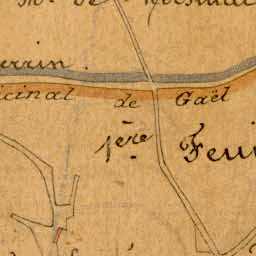 de
errin
icinal de Gaël
1ère Feui